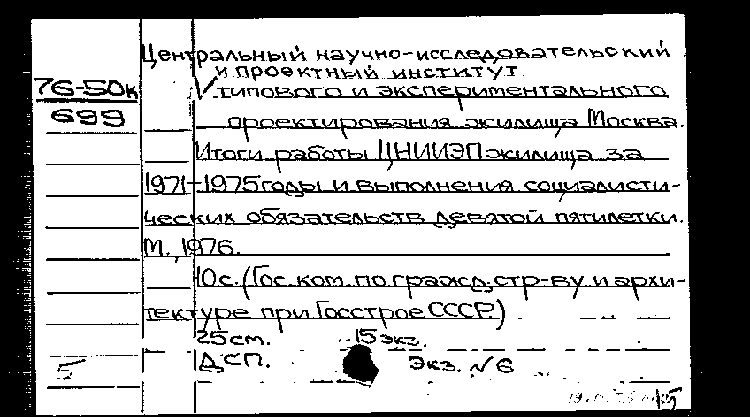 Центральный научно-исследовательский
и проектный институт
76-50к
699
типового и экспериментального
проектирования жилища Москва.
Итоги работы ЦНИИЭПжилища за
1971-1975годы и выполнения социалисти-
ческих обязательств девятой пятилетки.
М., 1976.
10с. (Гос. ком. по гражд. стр-ву и архи-
тектуре при Госстрое СССР)
25см. 15 экз.
ДСП. Экз. №6
5